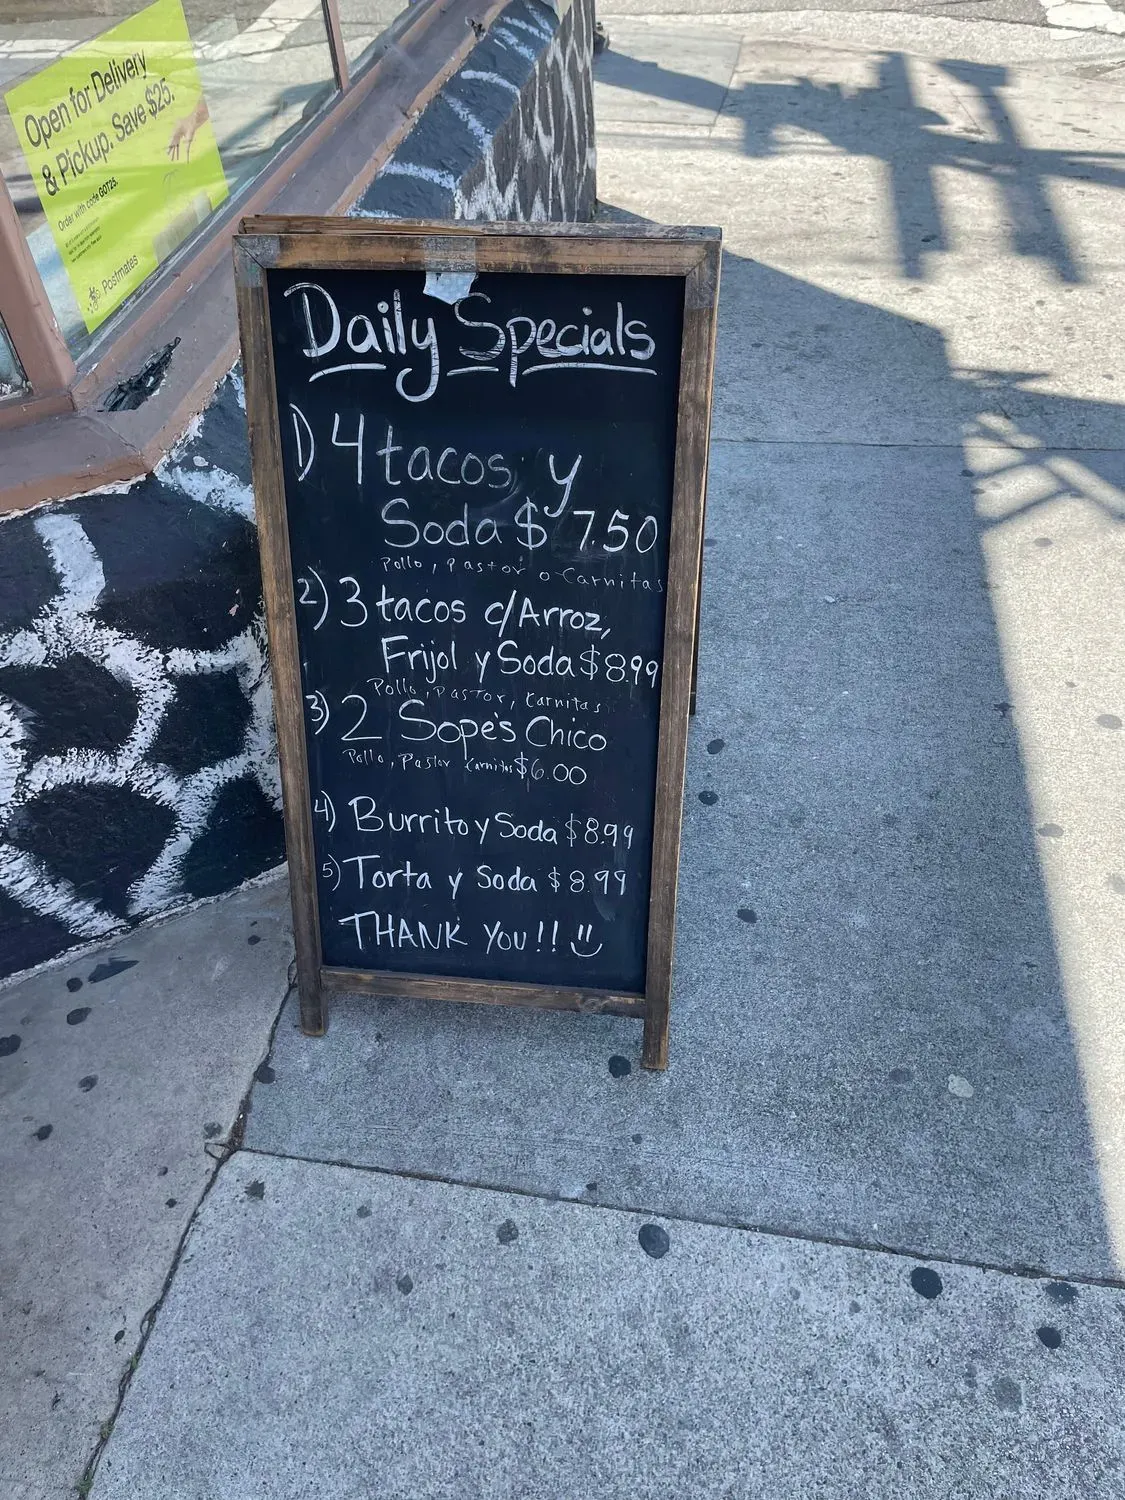 Open for Delivery
& Pickup. Save $25.
Order with code GOT25.
Postmates
Daily Specials
1) 4 tacos y
Soda $ 7.50
Pollo, Pastor o Carnitas
2) 3 tacos c/Arroz,
Frijol y Soda $8.99
Pollo, Pastor, Carnitas
3) 2 Sope's Chico
Pollo, Pastor Carnitas $6.00
4) Burrito y Soda $8.99
5) Torta y Soda $8.99
THANK YOU!!